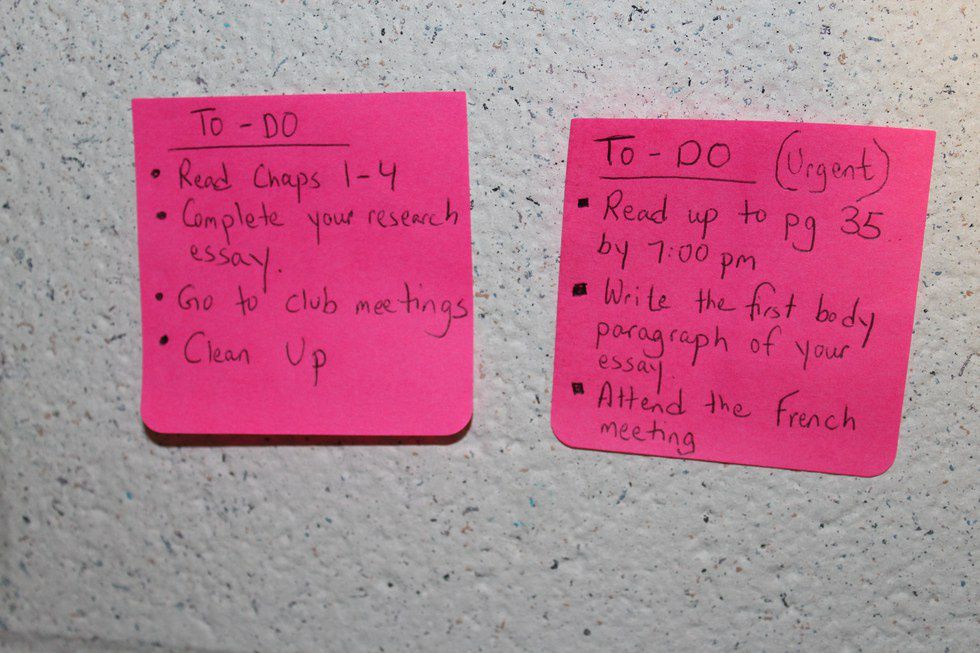 To - DO
• Read Chaps 1-4
• Complete your research
essay.
• Go to club meetings
• Clean Up
To - DO (Urgent)
▪ Read up to pg 35
by 7:00 pm
▪ Write the first body
paragraph of your
essay.
▪ Attend the French
meeting